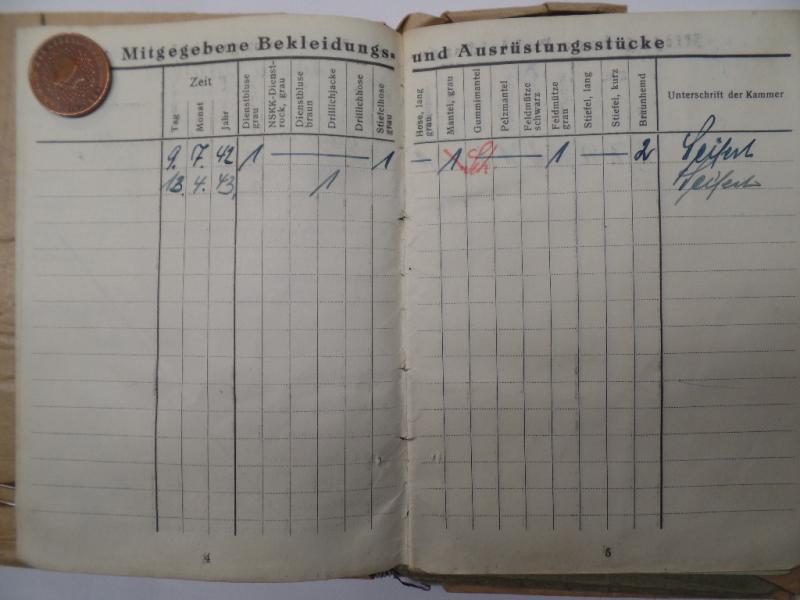 Mitgegebene Bekleidungs- und Ausrüstungsstücke
Zeit
Tag
Monat
Jahr
Dienstbluse grau
NSKK-Dienst-rock, grau
Dienstbluse braun
Drillichjacke
Drillichhose
Stiefelhose grau
Hose, lang grau
Mantel, grau
Gummimantel
Pelzmantel
Feldmütze schwarz
Feldmütze grau
Stiefel, lang
Stiefel, kurz
Braunhemd
Unterschrift der Kammer
9. 7. 42 1 — 1 — 1 — 1 — 2 Seifert
13. 4. 43. 1 Seifert
4
5